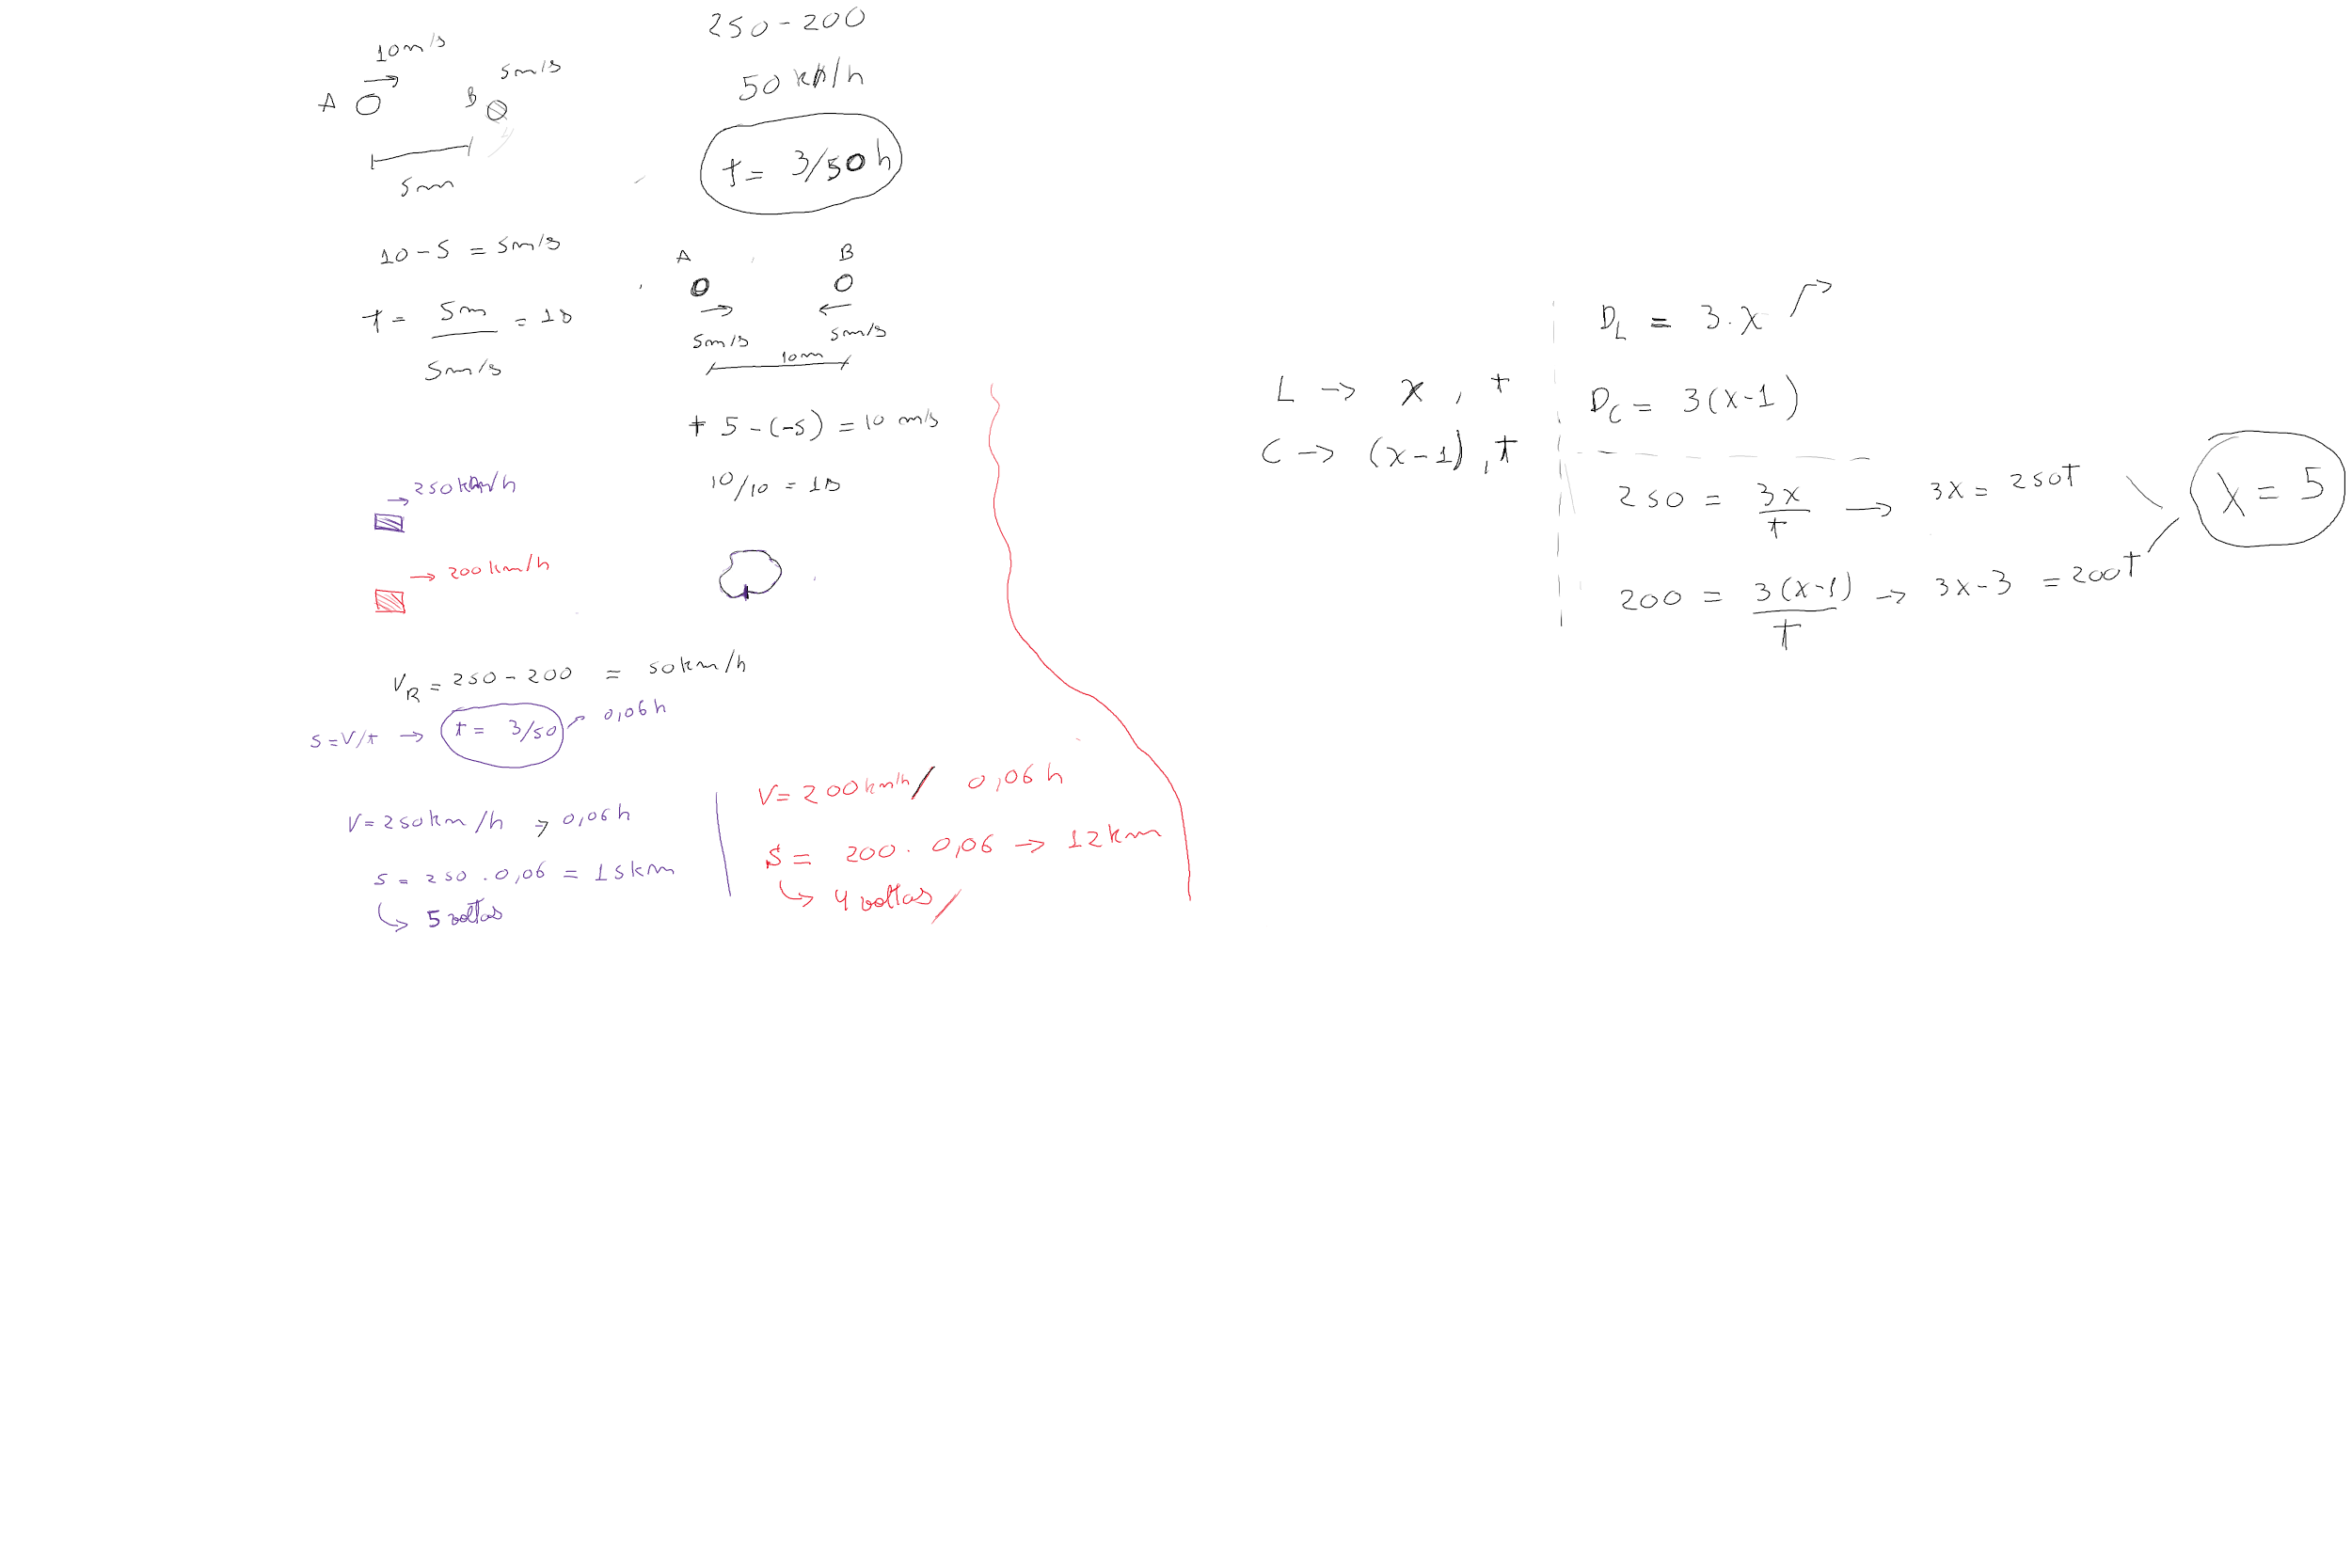 10m/s
5m/s
A
B
5m
10-5 = 5m/s
t = 5m / 5m/s = 1s
250-200
50 km/h
t = 3/50 h
A B
5m/s 5m/s
10m
+ 5-(-5) = 10 m/s
10/10 = 1s
→ 250km/h
→ 200km/h
V_R = 250-200 = 50km/h
S=V/t → t = 3/50 → 0,06h
V=250km/h → 0,06h
S = 250 . 0,06 = 15km
↳ 5 voltas
V= 200km/h / 0,06 h
S = 200 . 0,06 → 12km
↳ 4 voltas/
L → x , t
C → (x-1) , t
D_L = 3.x
D_C = 3(x-1)
250 = 3x/t → 3x = 250t
200 = 3(x-1)/t → 3x-3 = 200t
x = 5